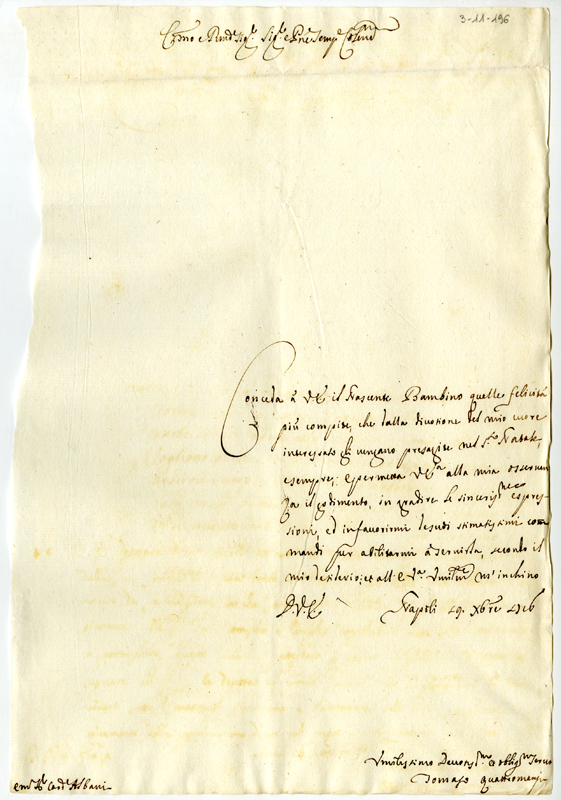 3-11-196
e Sig.r Sig.r e Pne
Conceda à V.E. il Nascente Bambino quelle felicità
più compite, che dalla divotione del mio cuore
interessato gli vengano presagite nel S.to Natale,
e sempre; e permetta V.E. alla mia osservan
za il godimento, in gradire le sincere espres-
sioni, ed in favorirmi de suoi stimatissimi com
mandi per abilitarmi à servirla, secondo il
mio desiderio; et all' E.V. m'inchino
D.V.E. Napoli 29. Xbre
Umilissimo Devotis.mo et obblig.mo Servo
Tomaso
Card.l Albani